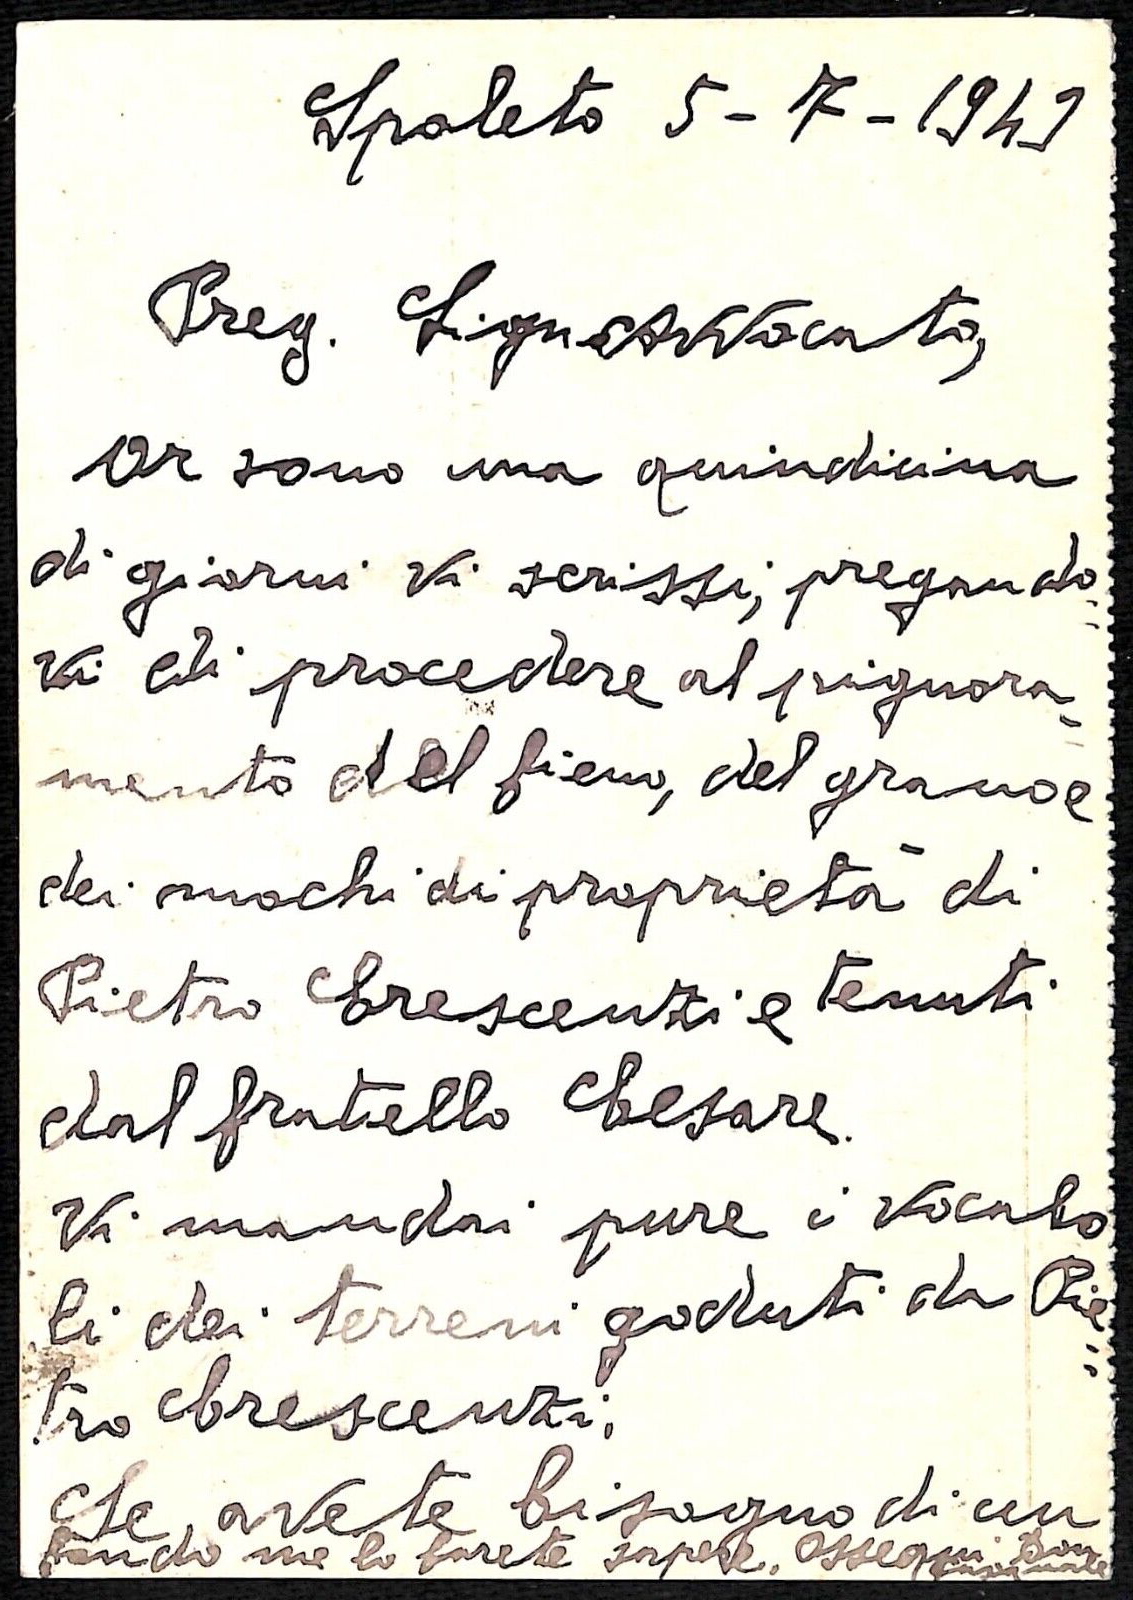 Spoleto 5-7-1949
Preg. Signor Avvocato,
Or sono una quindicina
di giorni vi scrissi, pregando
vi di procedere al pignora-
mento del fieno, del grano e
dei mochi di proprietà di
Pietro Crescenzi e tenuti
dal fratello Cesare.
Vi mandai pure i vocabo
li dei terreni goduti da Pie
tro Crescenzi.
Se avete bisogno di un
fondo me lo farete sapere. Ossequi Don